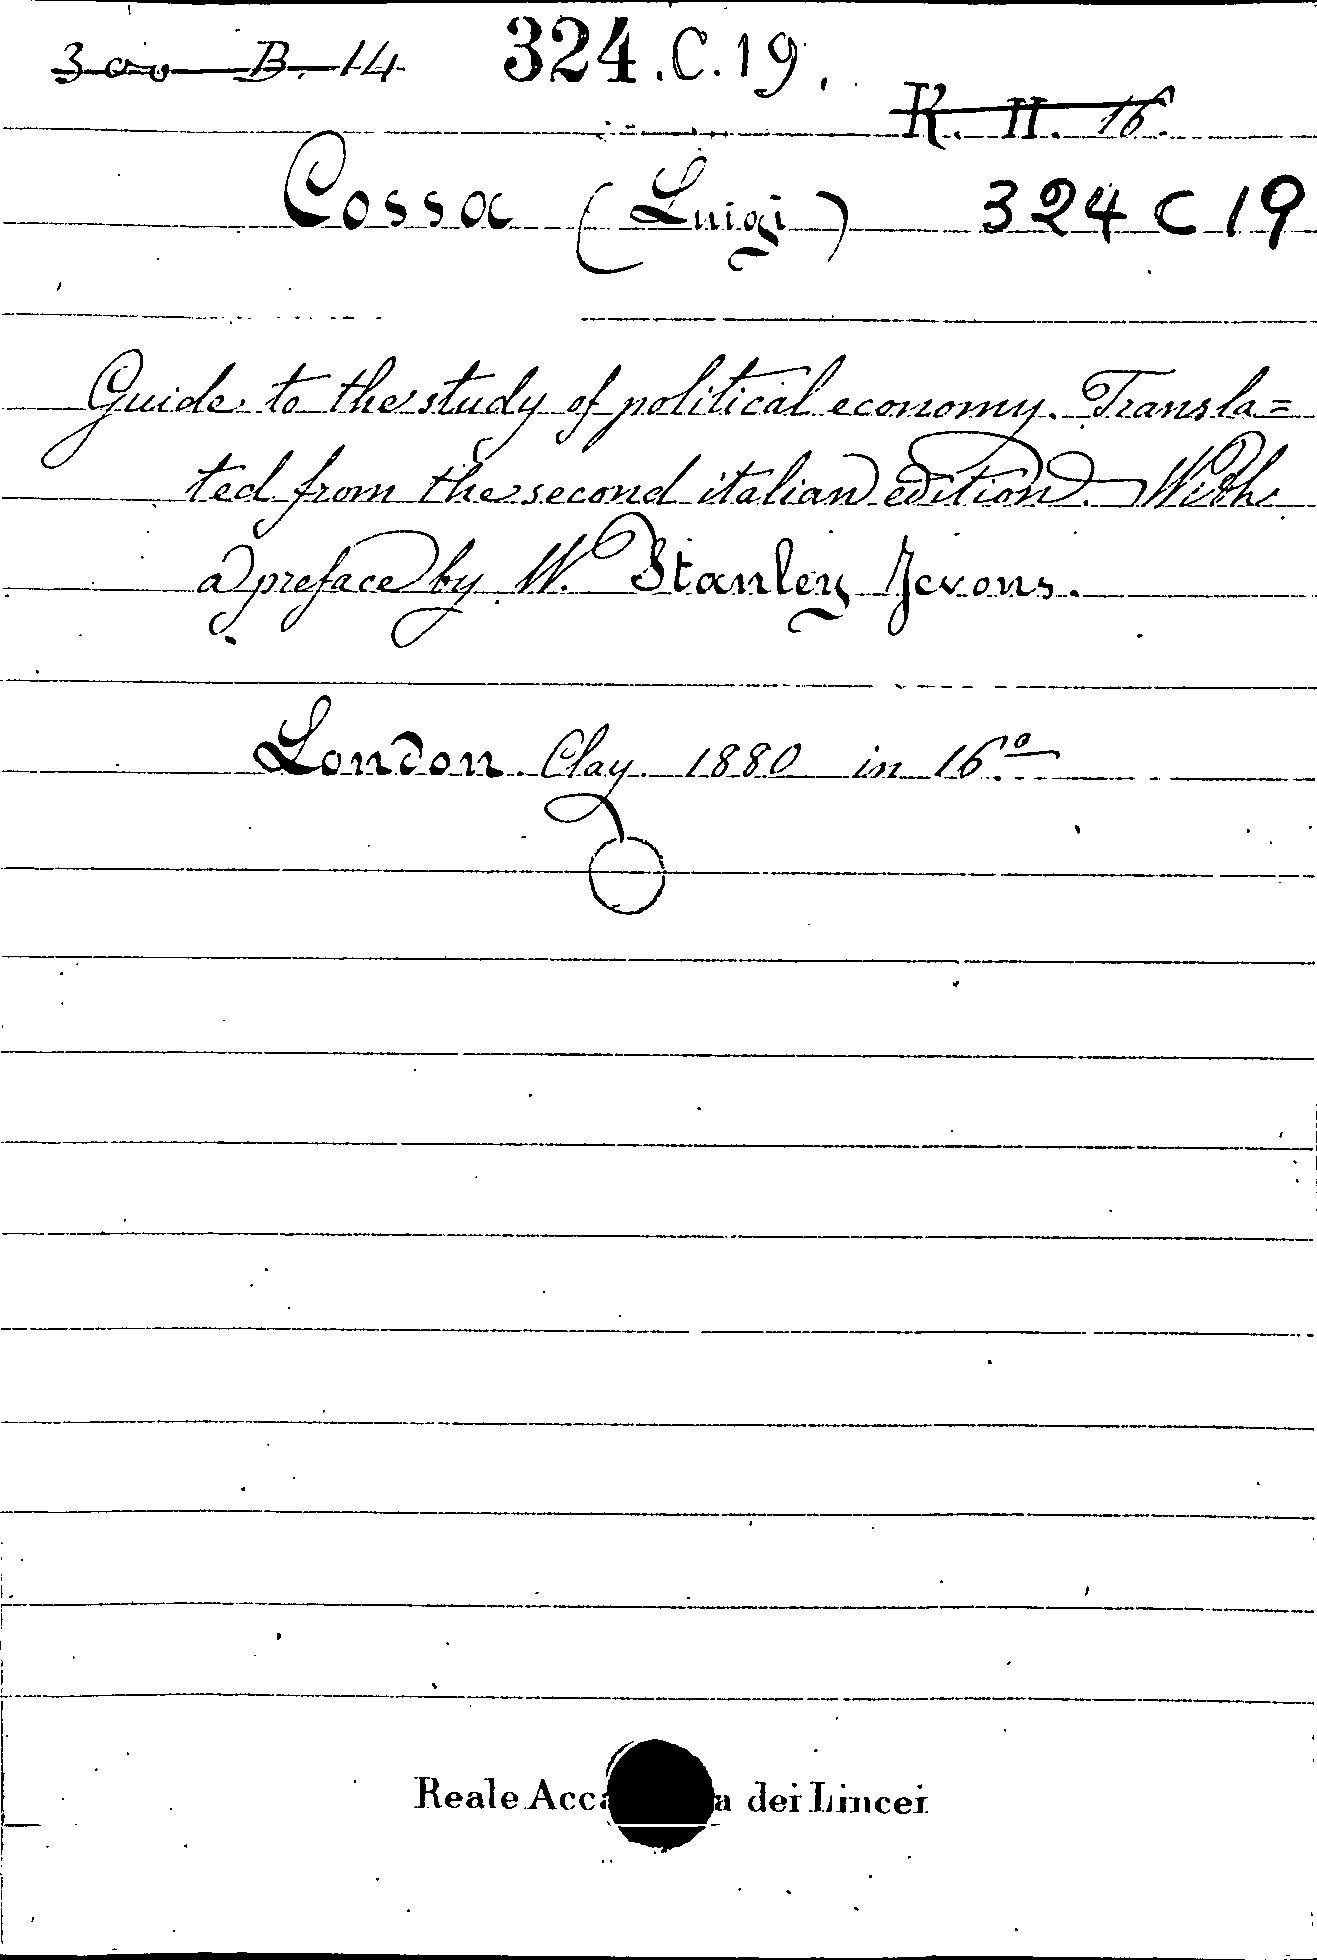 300 B. 14 324.C.19.
K. II. 16.
Cossa (Luigi) 324 C 19
Guide to the study of political economy. Transla=
ted from the second italian edition. With
a preface by W. Stanley Jevons.
London Clay 1880 in 16.º
Reale Acca a dei Lincei